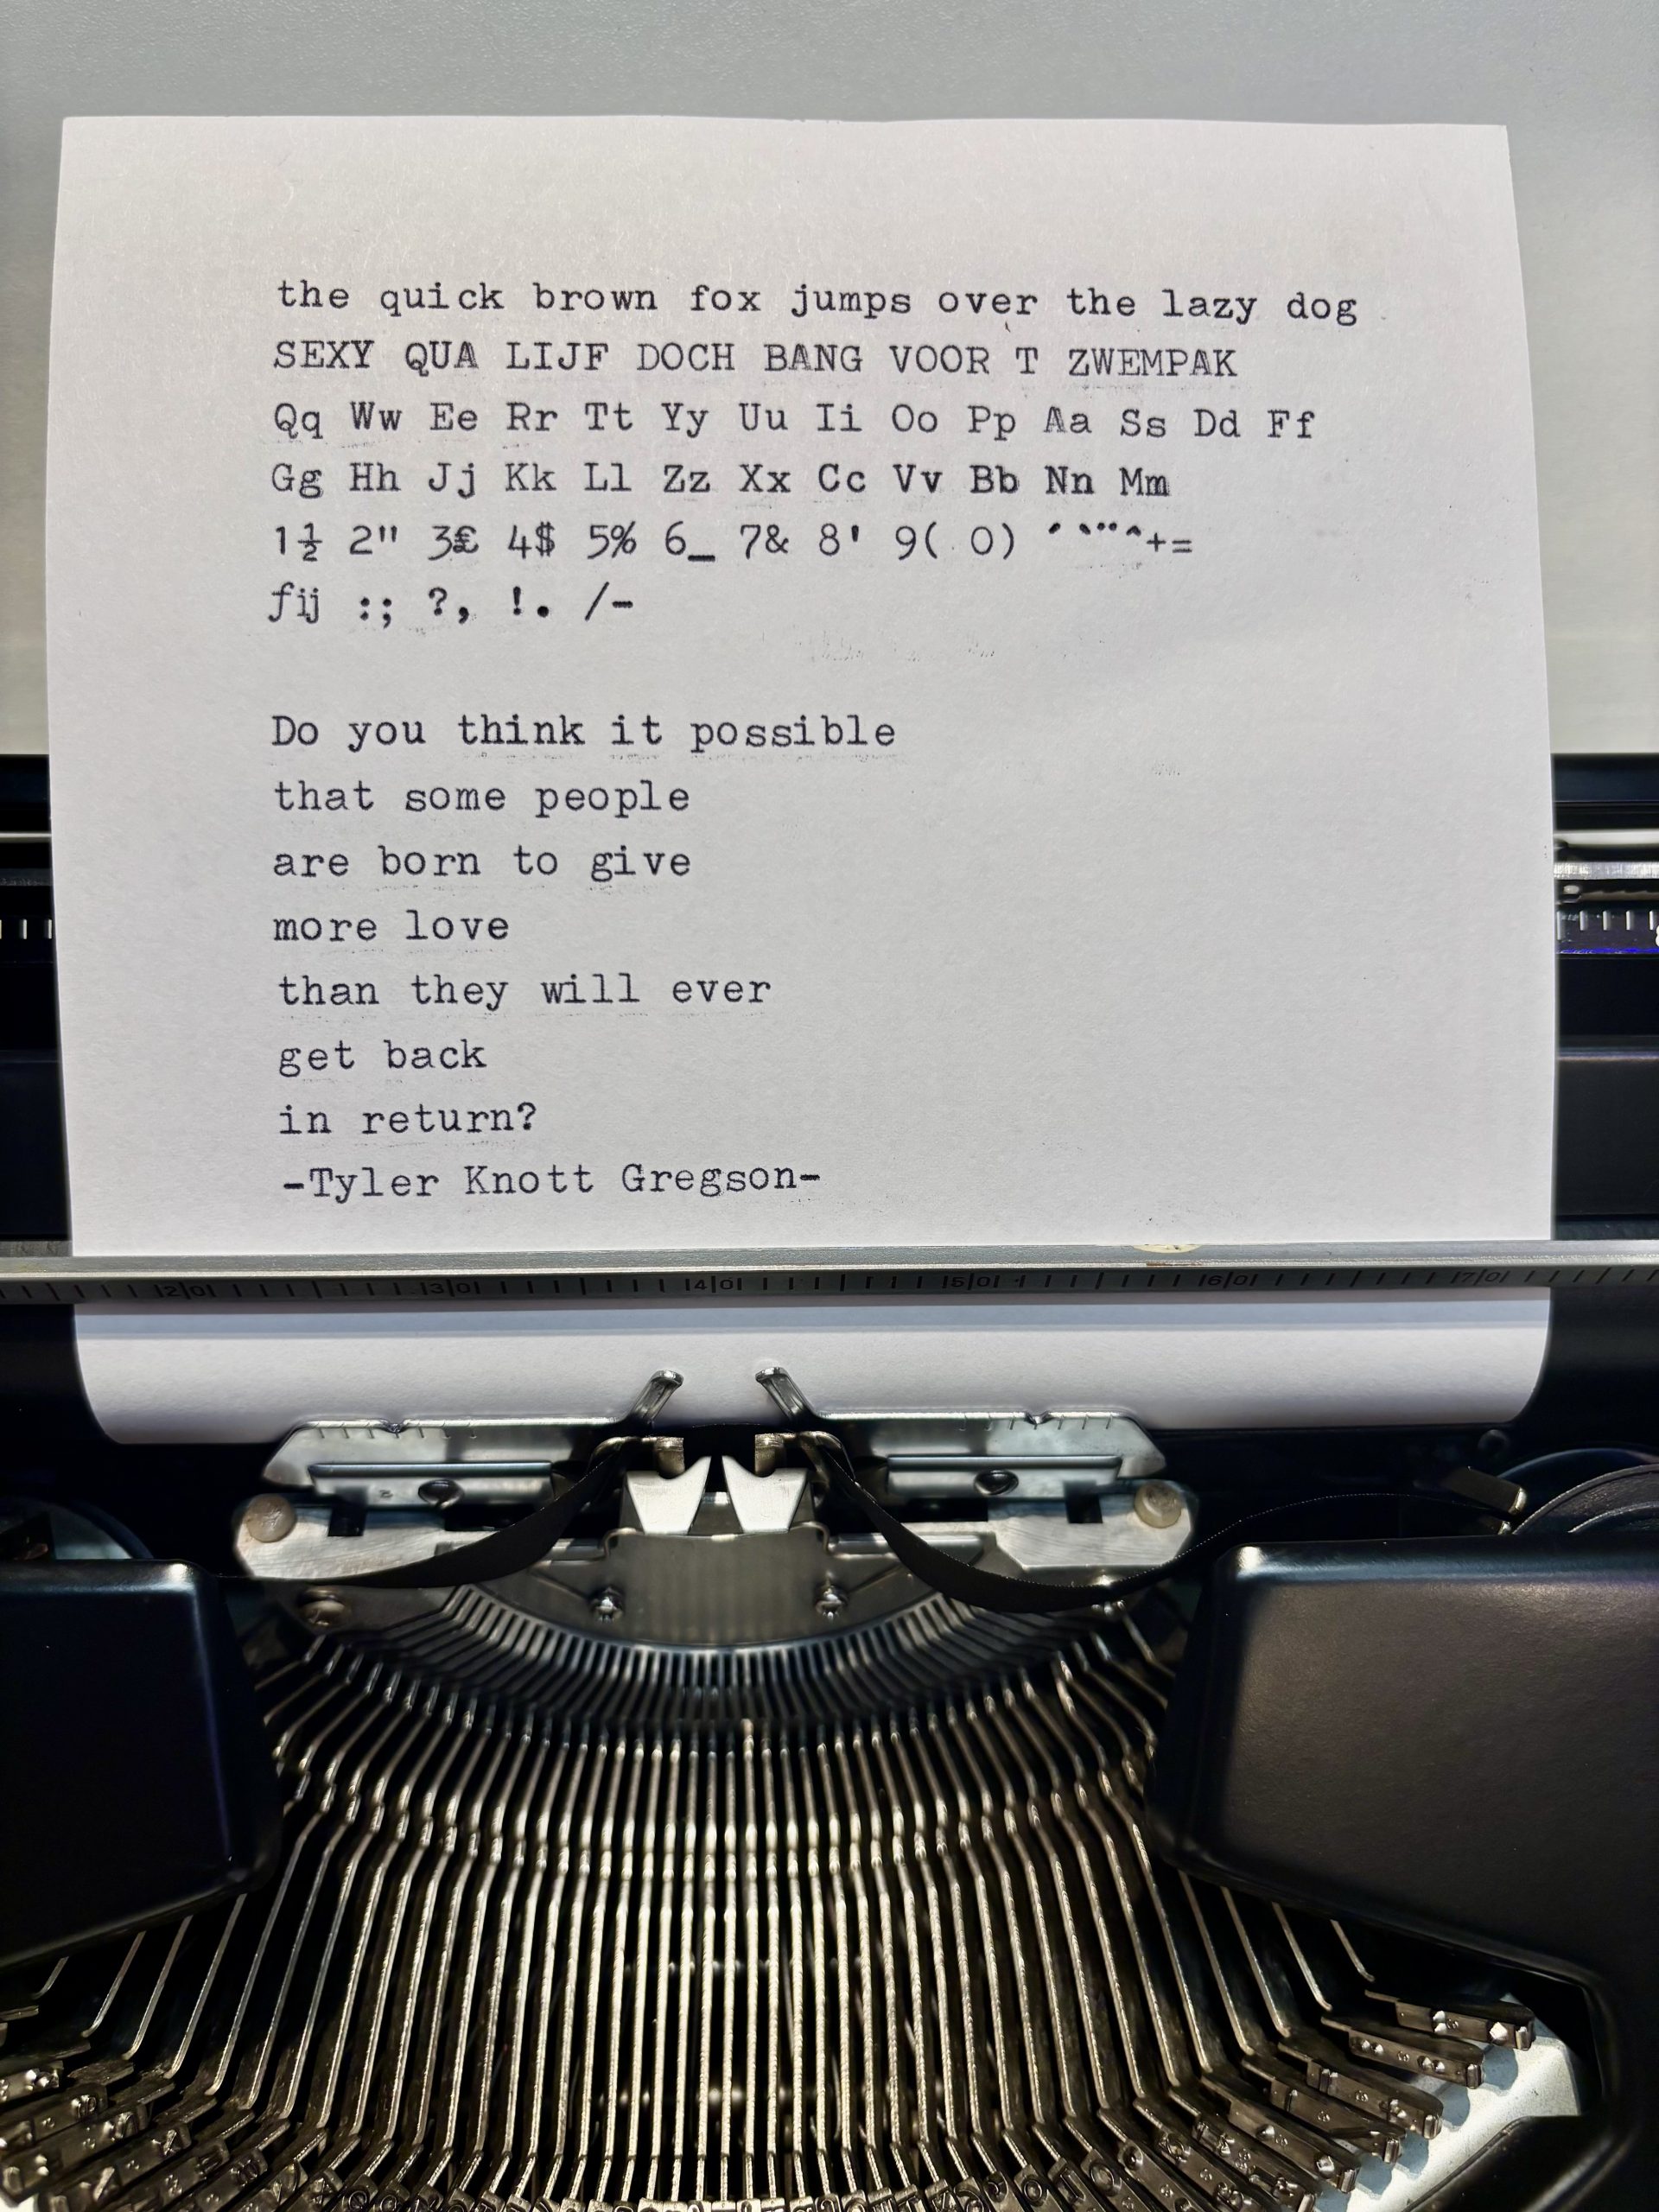 the quick brown fox jumps over the lazy dog
SEXY QUA LIJF DOCH BANG VOOR T ZWEMPAK
Qq Ww Ee Rr Tt Yy Uu Ii Oo Pp Aa Ss Dd Ff
Gg Hh Jj Kk Ll Zz Xx Cc Vv Bb Nn Mm
1½ 2" 3£ 4$ 5% 6_ 7& 8' 9( 0) ´`¨^+=
ƒij :; ?, !. /-
Do you think it possible
that some people
are born to give
more love
than they will ever
get back
in return?
-Tyler Knott Gregson-
20 30 40 50 60 70